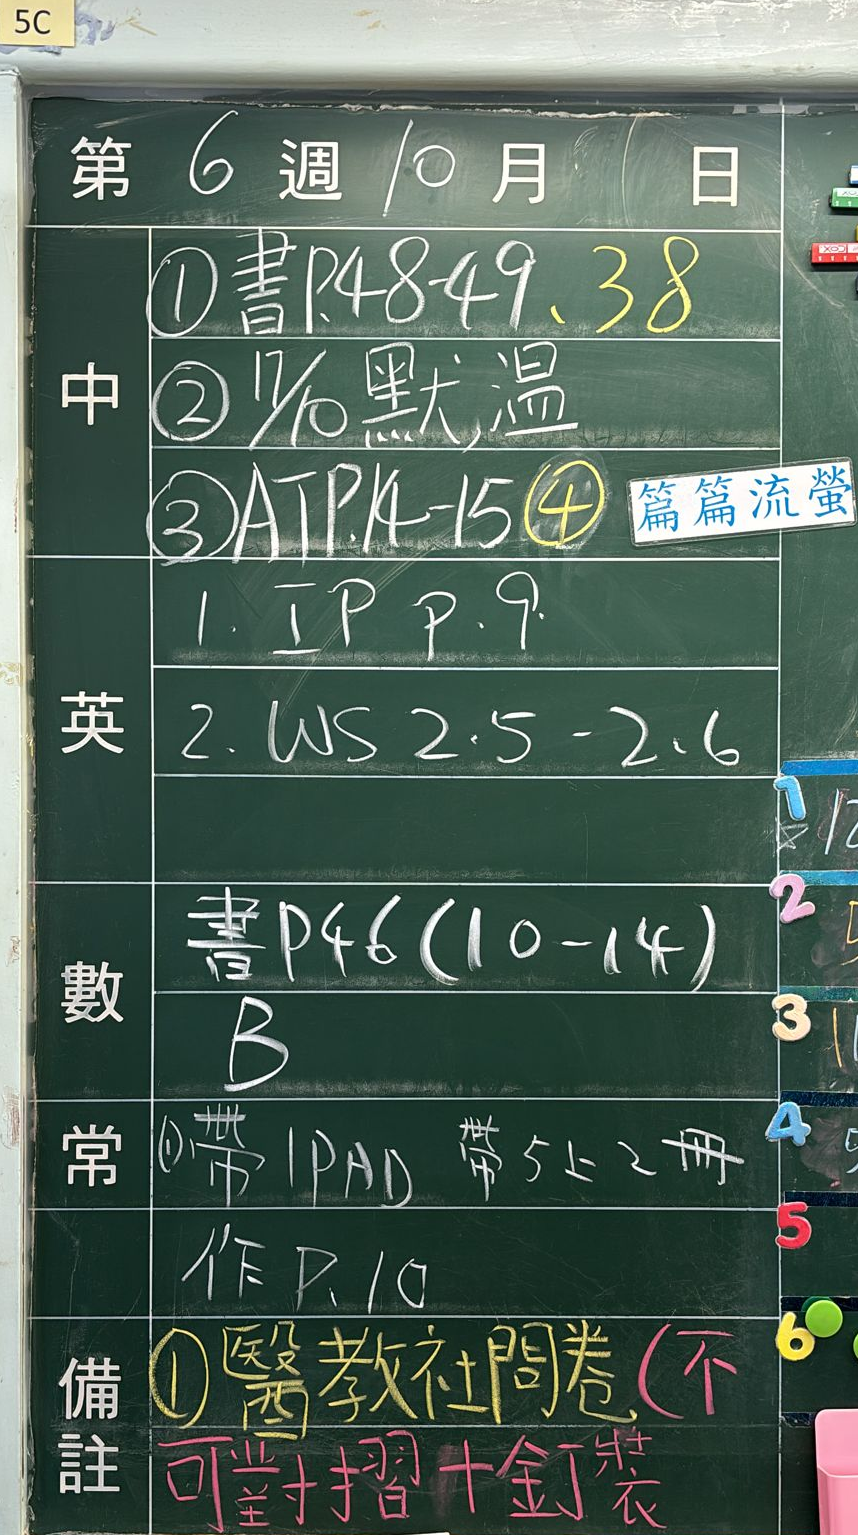 5C
第 6 週 10 月 日
中
①書P.48-49、38
②17/10 默,溫
③ATP.14-15 ④ 篇篇流螢
英
1. IP p.9.
2. WS 2.5 - 2.6
數
書P46(10-14)
B
常
①帶IPAD 帶5上2冊
作P.10
備註
①醫教社問卷(不
可對摺十釘裝
1
2
3
4
5
6